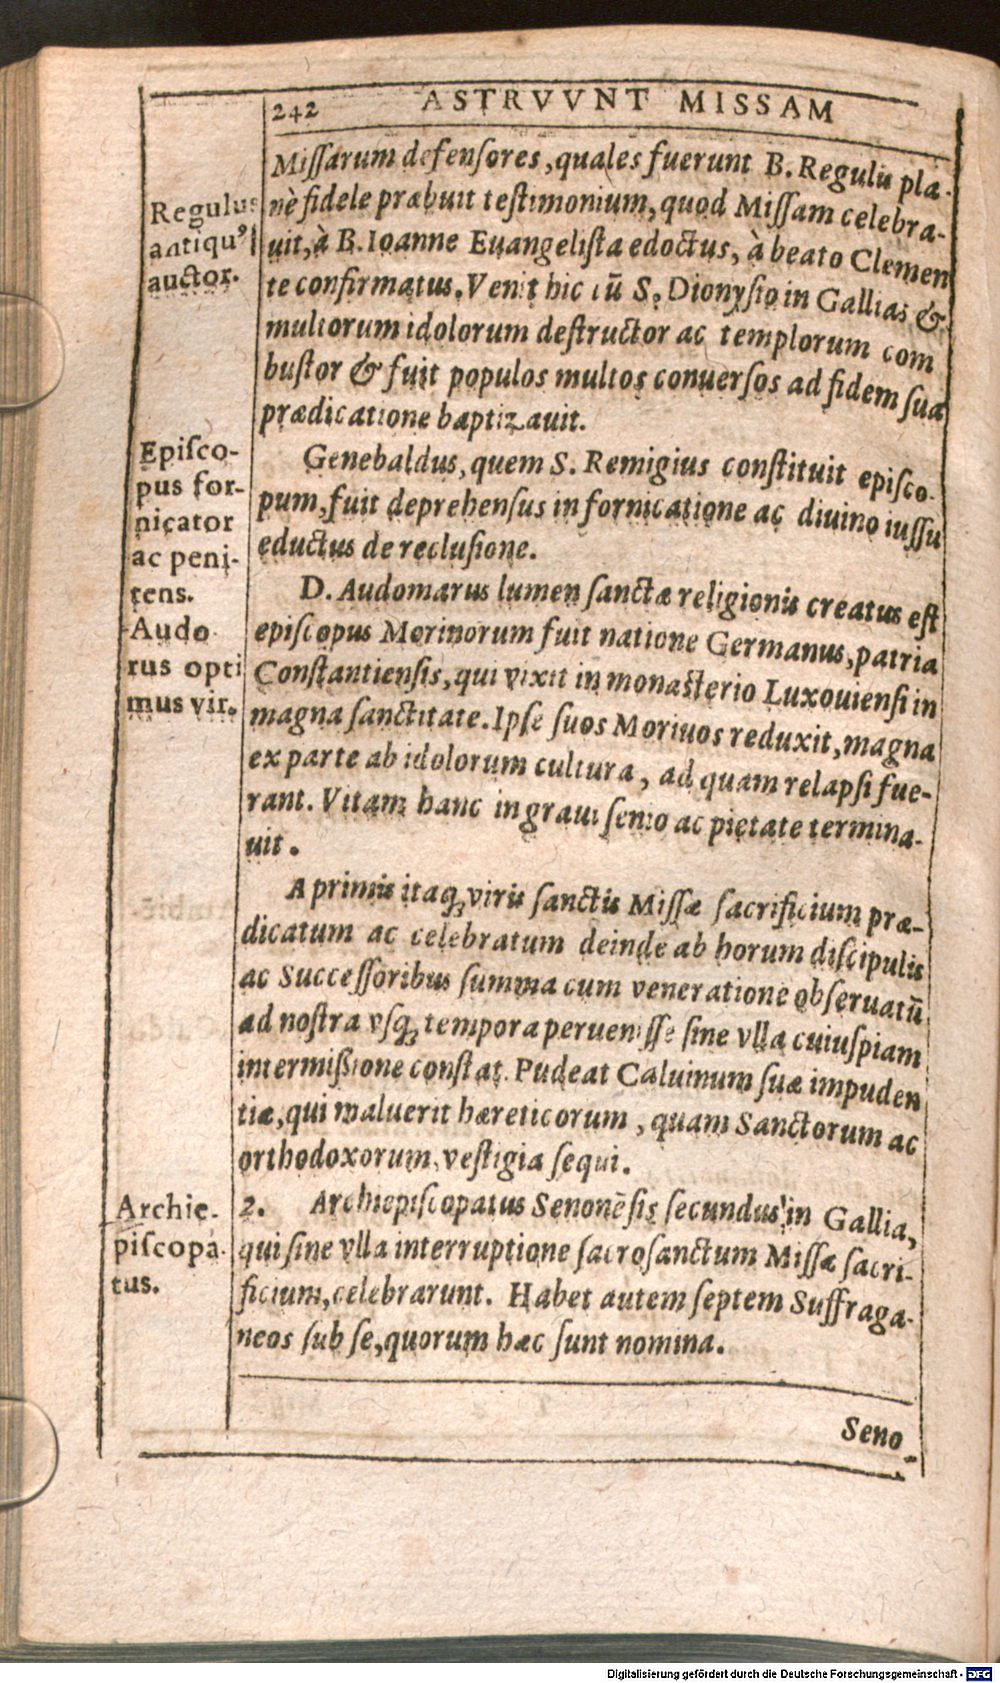 242 ASTRVVNT MISSAM
Regulus
antiqu⁹
auctor.
Epiſco-
pus for-
nicator
ac peni-
tens.
Audo
rus opti
mus vir.
Archie-
piſcopa-
tus.
Miſſarum defenſores, quales fuerunt B. Regulus pla-
nè fidele præbuit teſtimonium, quod Miſſam celebra-
uit, à B. Ioanne Euangeliſta edoctus, à beato Clemen
te confirmatus. Venit hic cū S. Dionyſio in Gallias &
multorum idolorum deſtructor ac templorum com
buſtor & fuit populos multos conuerſos ad fidem ſua
prædicatione baptizauit.
Genebaldus, quem S. Remigius conſtituit epiſco-
pum, fuit deprehenſus in fornicatione ac diuino iuſſu
eductus de recluſione.
D. Audomarus lumen ſanctæ religionis creatus eſt
epiſcopus Morinorum fuit natione Germanus, patria
Conſtantienſis, qui vixit in monaſterio Luxouienſi in
magna ſanctitate. Ipſe ſuos Moriuos reduxit, magna
ex parte ab idolorum cultura, ad quam relapſi fue-
rant. Vitam hanc in graui ſenio ac pietate termina-
uit.
A primis itaq; viris ſanctis Miſſæ ſacrificium præ-
dicatum ac celebratum deinde ab horum diſcipulis
ac Succeſſoribus ſumma cum veneratione obſeruatū
ad noſtra vſq; tempora perueniſſe ſine vlla cuiuſpiam
intermiſſione conſtat. Pudeat Caluinum ſuæ impuden
tiæ, qui maluerit hæreticorum, quam Sanctorum ac
orthodoxorum, veſtigia ſequi.
2. Archiepiſcopatus Senonēſis ſecundus in Gallia,
qui ſine vlla interruptione ſacroſanctum Miſſæ ſacri-
ficium, celebrarunt. Habet autem ſeptem Suffraga-
neos ſub ſe, quorum hæc ſunt nomina.
Seno-
Digitalisierung gefördert durch die Deutsche Forschungsgemeinschaft - DFG